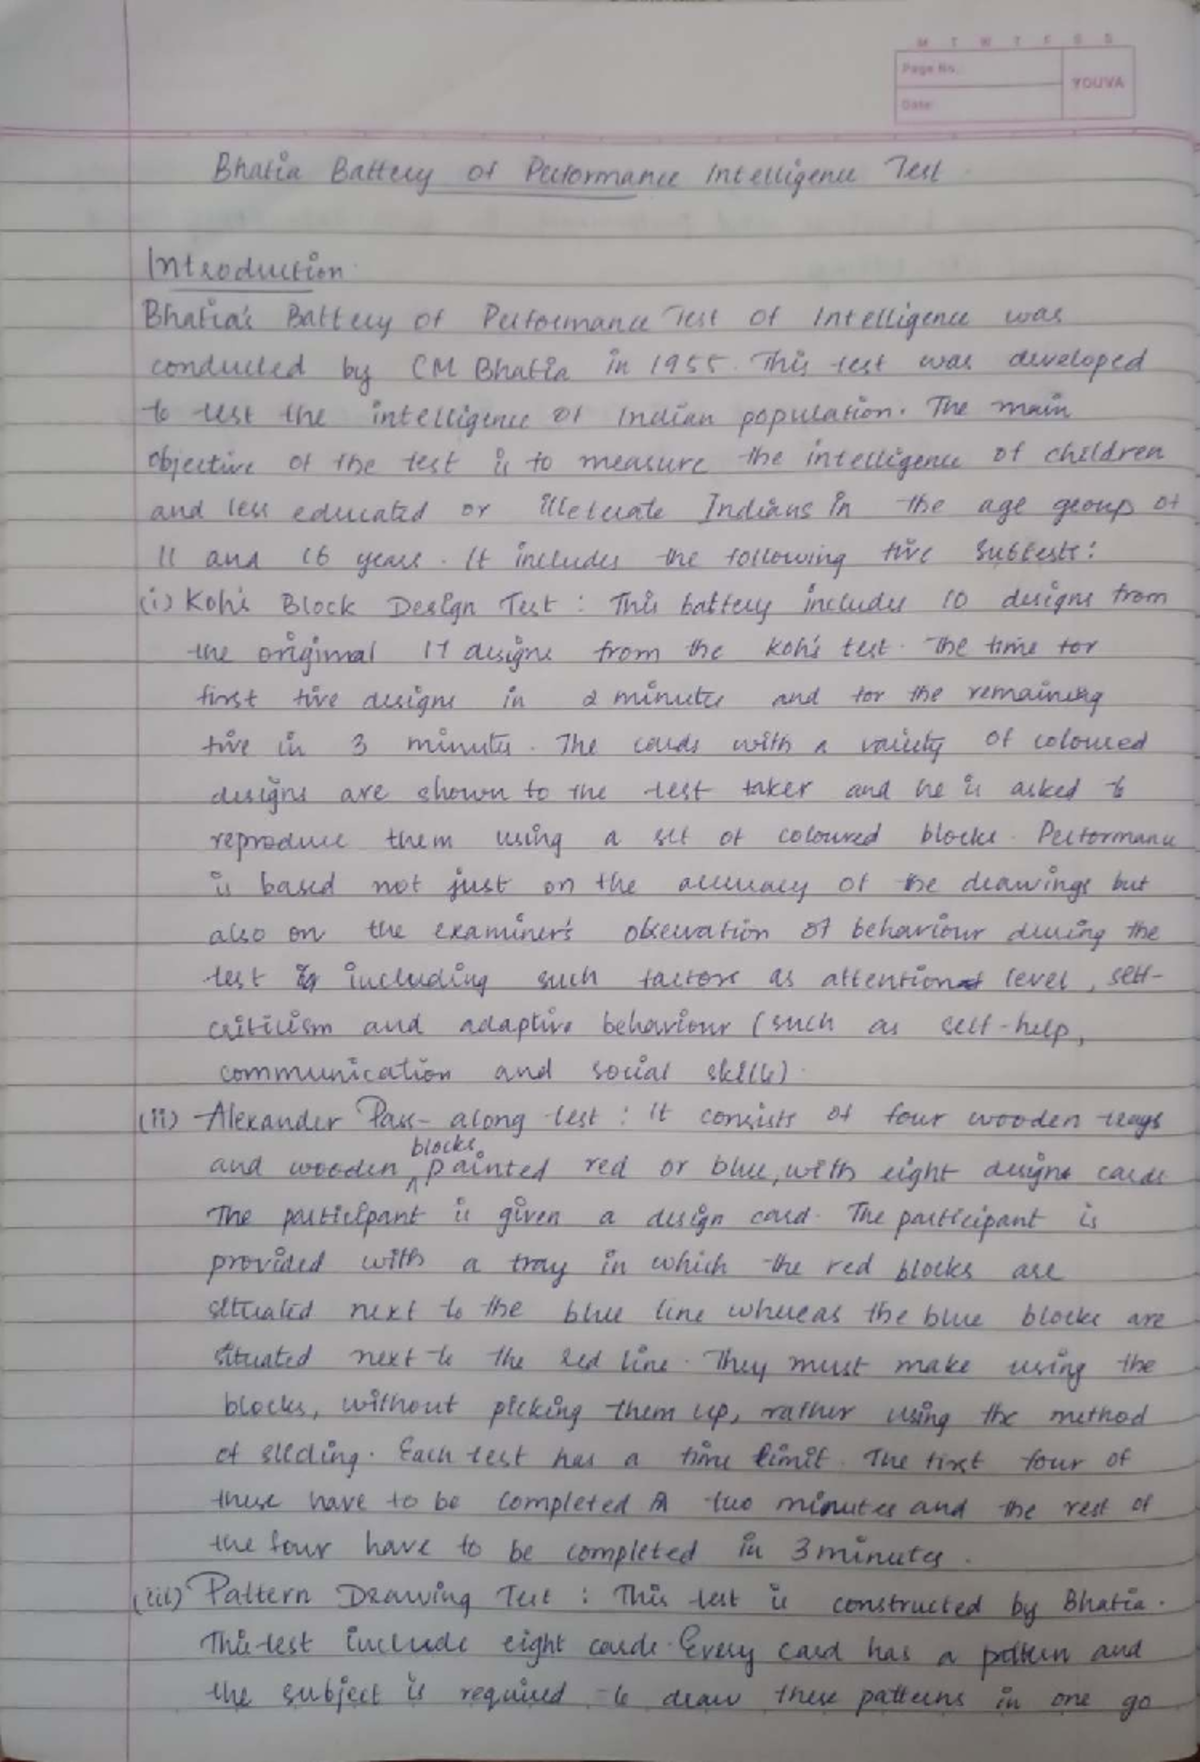 M T W T F S S
Page No.:
YOUVA
Date:
Bhatia Battery of Performance Intelligence Test.
Introduction
Bhatia's Battery of Performance Test of Intelligence was
conducted by CM Bhatia in 1955. This test was developed
to test the intelligence of Indian population. The main
objective of the test is to measure the intelligence of children
and less educated or illeterate Indians in the age group of
11 and 16 years. It includes the following five subtests:
(i) Koh's Block Design Test: This battery includes 10 designs from
the original 17 designs from the Koh's test. The time for
first five designs in 2 minutes and for the remaining
five in 3 minutes. The cards with a variety of coloured
designs are shown to the test taker and he is asked to
reproduce them using a set of coloured blocks. Performance
is based not just on the accuracy of the drawings but
also on the examiner's observation of behaviour during the
test including such factors as attention level, self-
criticism and adaptive behaviour (such as self-help,
communication and social skills).
(ii) Alexander Pass-along test: It consists of four wooden trays
and wooden blocks painted red or blue, with eight designs cards
The participant is given a design card. The participant is
provided with a tray in which the red blocks are
situated next to the blue line whereas the blue blocks are
situated next to the red line. They must make using the
blocks, without picking them up, rather using the method
of sliding. Each test has a time limit. The first four of
these have to be completed in two minutes and the rest of
the four have to be completed in 3 minutes.
(iii) Pattern Drawing Test: This test is constructed by Bhatia.
This test include eight cards. Every card has a pattern and
the subject is required to draw these patterns in one go